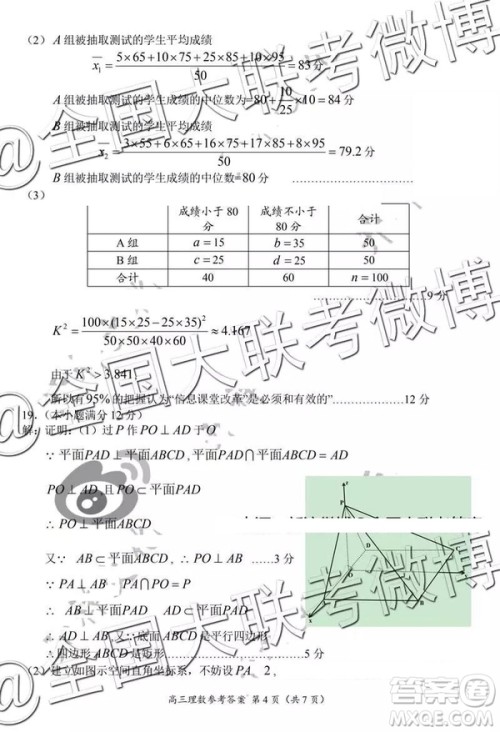 （2）A 组被抽取测试的学生平均成绩
x₁ = (5×65+10×75+25×85+10×95)/50 = 83 分
A 组被抽取测试的学生成绩的中位数为=80+10/25×10=84 分
B 组被抽取测试的学生平均成绩
x₂ = (3×55+6×65+16×75+17×85+8×95)/50 = 79.2 分
B 组被抽取测试的学生成绩的中位数=80 分
（3）
成绩小于 80 分 成绩不小于 80 分 合计
A 组 a=15 b=35 50
B 组 c=25 d=25 50
合计 40 60 n=100
9 分
K² = 100×(15×25−25×35)²/(50×50×40×60) ≈ 4.167
由于 K² > 3.841,
所以有 95% 的把握认为“信息课堂改革”是必须和有效的” 12 分
19.（本小题满分 12 分）
解：证明：（1）过 P 作 PO⊥AD 于 O
∵ 平面PAD⊥平面ABCD, 平面PAD∩平面ABCD=AD
PO⊥AD, 且 PO⊂平面PAD
∴ PO⊥平面ABCD
又∵ AB⊂平面ABCD ∴ PO⊥AB ......3 分
∵ PA⊥AB PA∩PO=P
∴ AB⊥平面PAD
∴ AB⊥AD 又∵ 底面ABCD是平行四边形
∴ 四边形ABCD是矩形 5 分
（2）建立如图示空间直角坐标系，不妨设 PA 2，
P
D
C
A
B
高三理数参考答案 第 4 页（共 7 页）
@全国大联考微博
@全国大联考微博
@全国大联考微博
答案圈